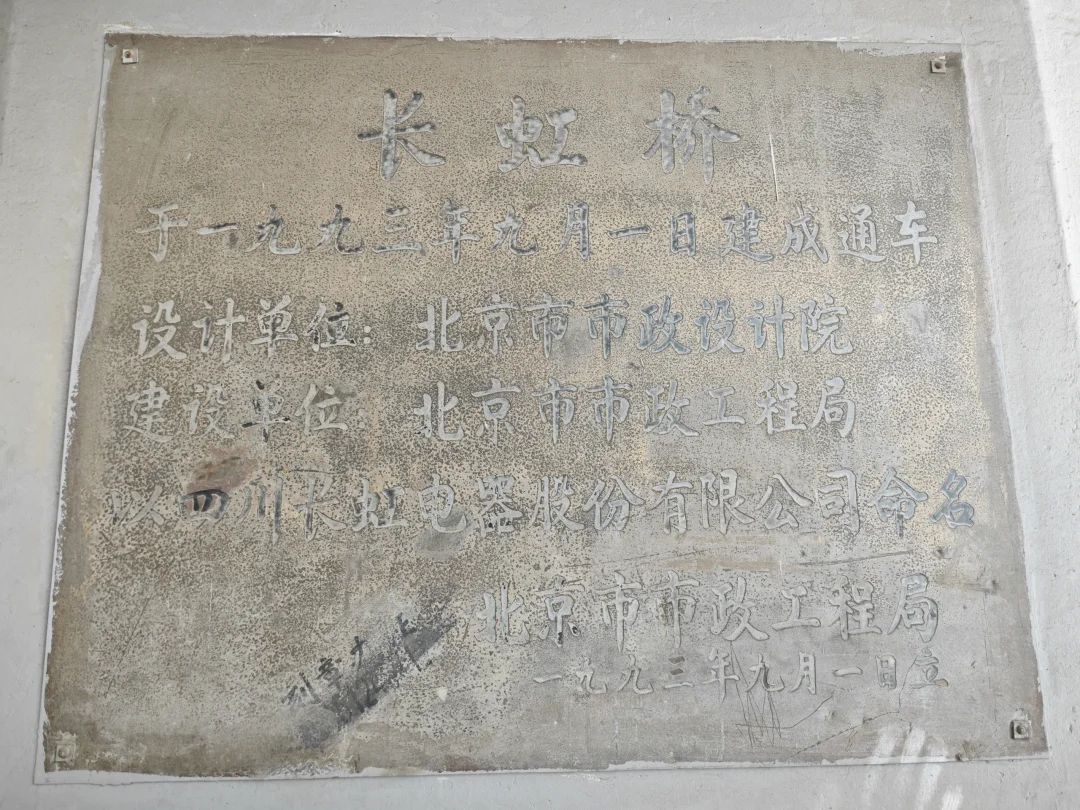 长虹桥
于一九九三年九月一日建成通车
设计单位：北京市市政设计院
建设单位：北京市市政工程局
以四川长虹电器股份有限公司命名
北京市市政工程局
一九九三年九月一日立